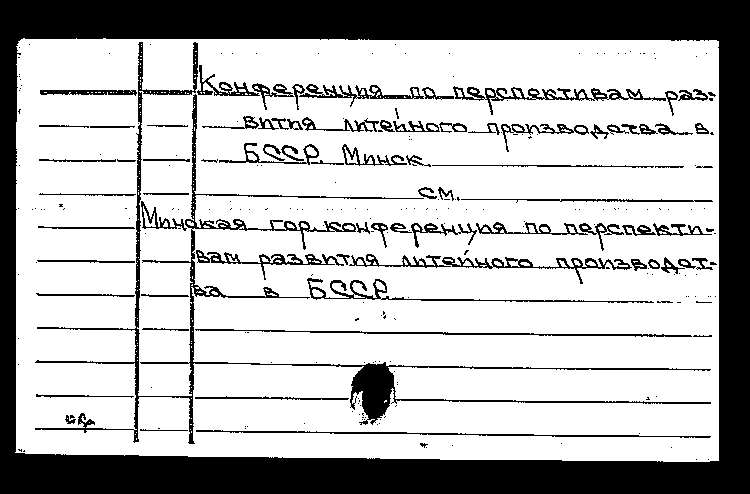 Конференция по перспективам раз-
вития литейного производства в
БССР. Минск.
см.
Минская гор. конференция по перспекти-
вам развития литейного производст-
ва в БССР